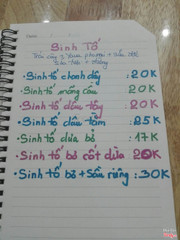 Sinh Tố
Sinh tố chanh dây : 20K
Sinh tố mãng cầu : 20K
Sinh tố dâu tây : 20K
Sinh tố dâu tằm : 25K
Sinh tố dưa bở : 17K
Sinh tố bơ cốt dừa 20K
Sinh tố bơ + Sầu riêng : 30K